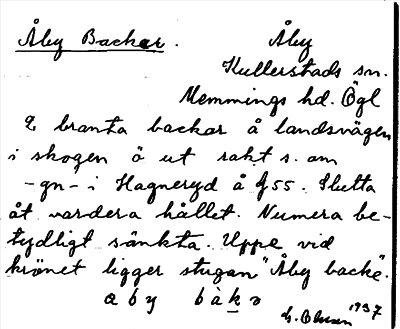 Åby Backar. Åby
Kullerstads sn.
Memmings hd. Ögl
2 branta backar å landsvägen
i skogen ö ut rakt s. om
-gn- i Hagneryd å f55. Slutta
åt vardera hållet. Numera be-
tydligt sänkta. Uppe vid
krönet ligger stugan "Åby backe".
åby bakə
1937